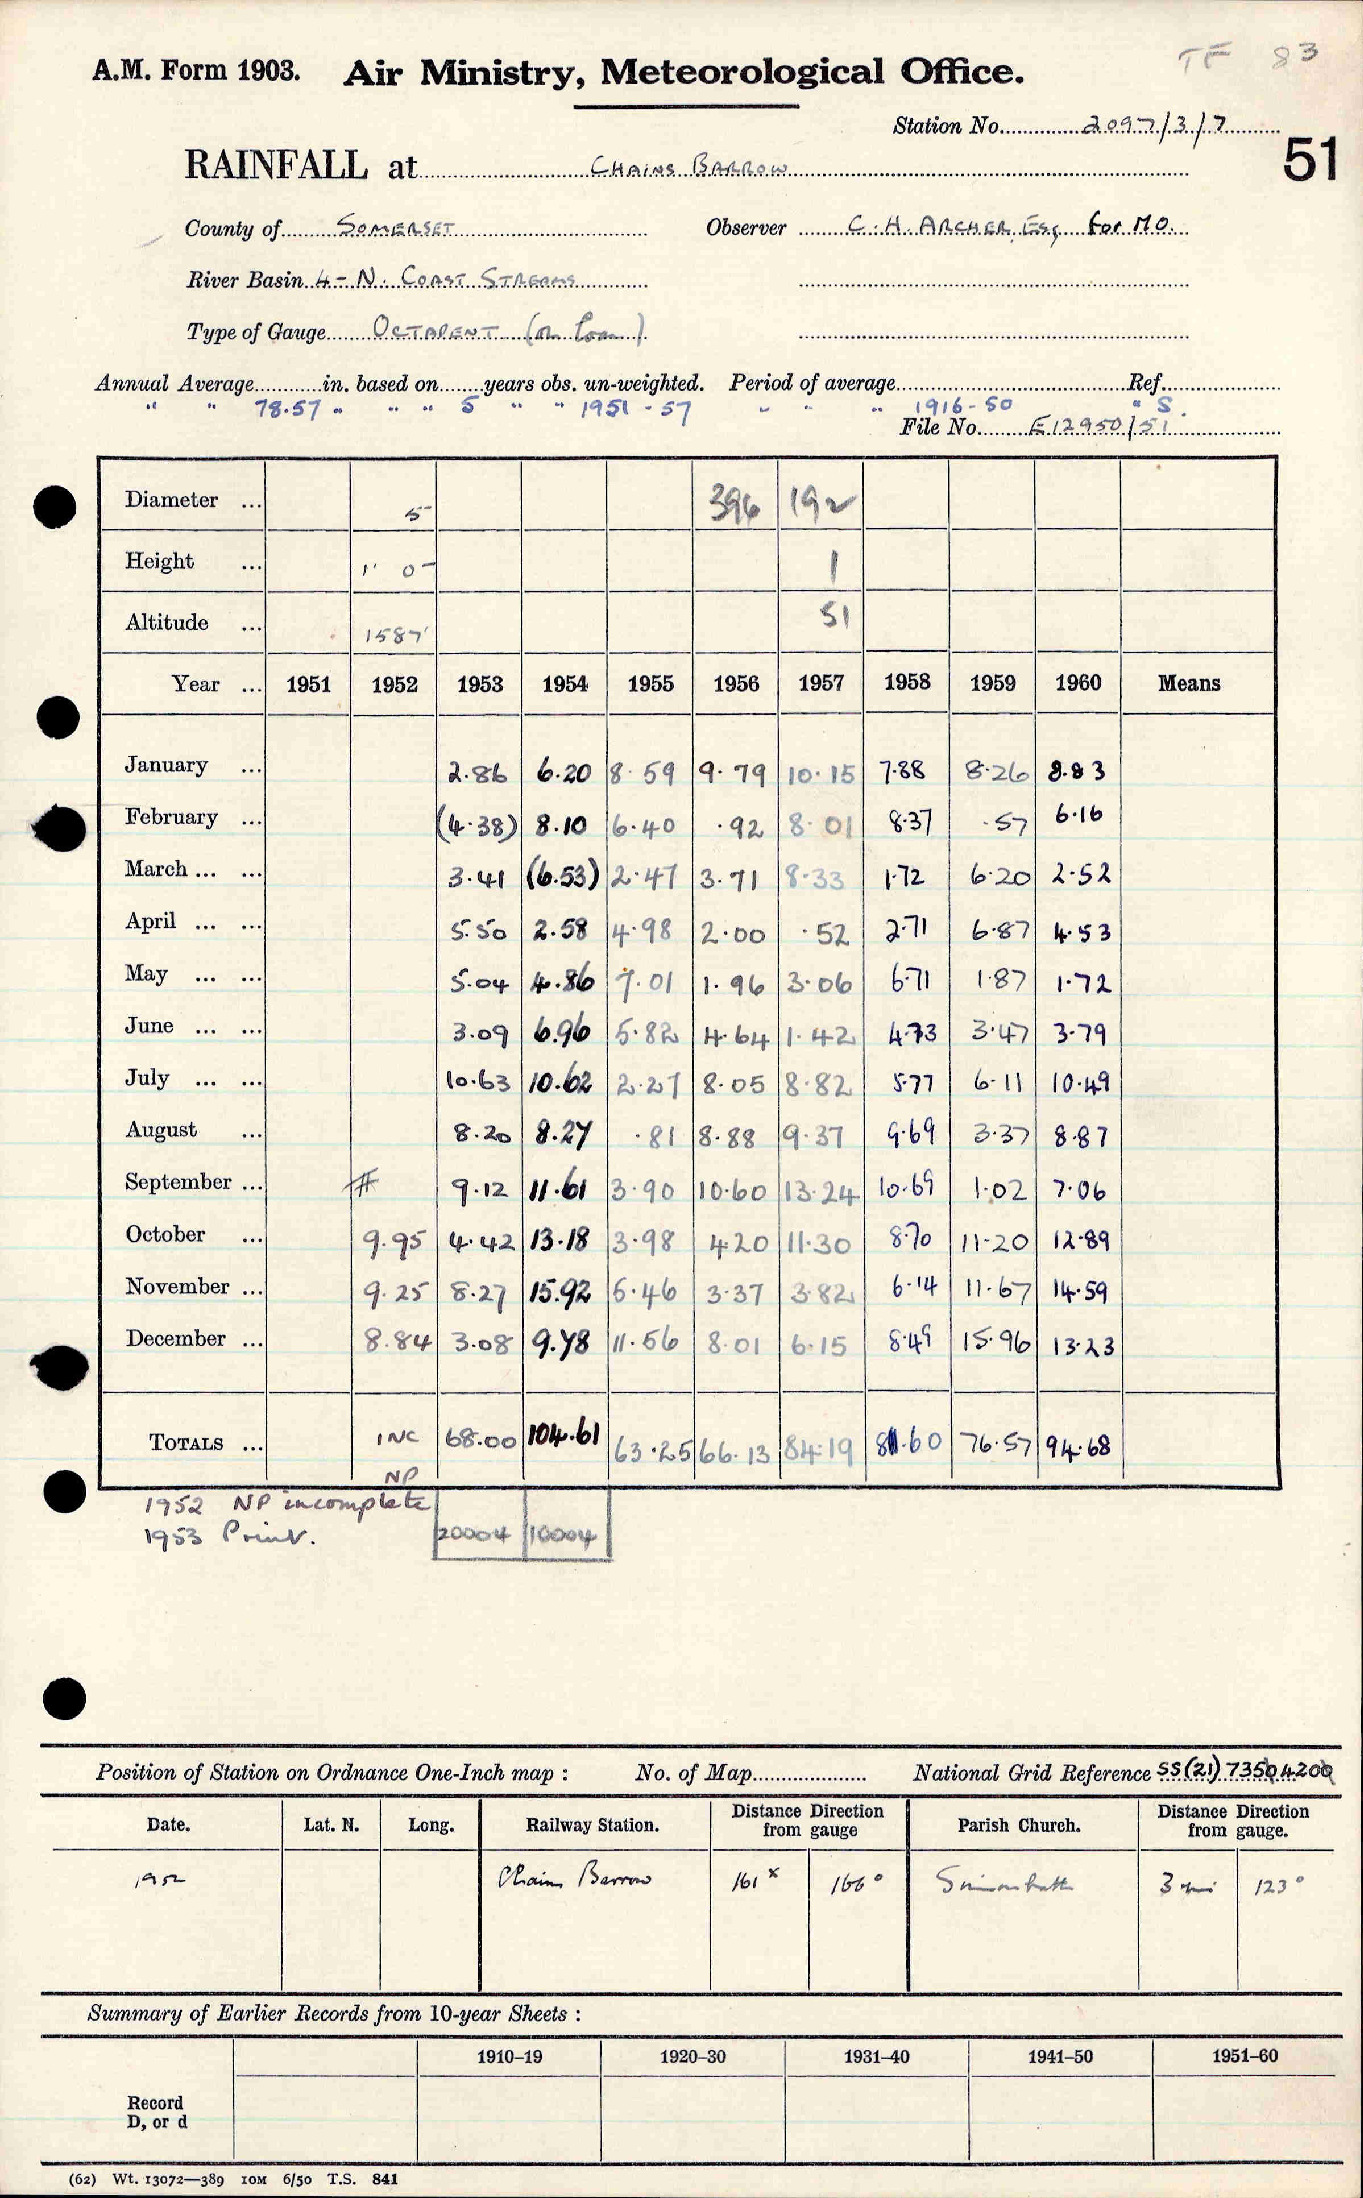 TF 83
A.M. Form 1903. Air Ministry, Meteorological Office.
Station No. 2097/3/7
51
RAINFALL at CHAINS BARROW
County of SOMERSET Observer C. H. ARCHER, Esq for MO.
River Basin 4 - N. COAST STREAMS
Type of Gauge OCTAPENT (on loan)
Annual Average............in. based on........years obs. un-weighted. Period of average............Ref............
" " 78.57 " " " 5 " " 1951 - 57 " " " 1916-50 " S.
File No. E12950/51
Diameter ... 5 396 192
Height ... 1' 0" 1
Altitude ... 1587' 51
Year ... 1951 1952 1953 1954 1955 1956 1957 1958 1959 1960 Means
January ... 2.86 6.20 8.59 9.79 10.15 7.88 8.26 8.83
February ... (4.38) 8.10 6.40 .92 8.01 8.37 .57 6.16
March ... ... 3.41 (6.53) 2.47 3.71 8.33 1.72 6.20 2.52
April ... ... 5.50 2.58 4.98 2.00 .52 2.71 6.87 4.53
May ... ... 5.04 4.86 7.01 1.96 3.06 6.71 1.87 1.72
June ... ... 3.09 6.96 5.82 4.64 1.42 4.73 3.47 3.79
July ... ... 10.63 10.62 2.27 8.05 8.82 5.77 6.11 10.49
August ... 8.20 8.27 .81 8.88 9.37 9.69 3.37 8.87
September ... # 9.12 11.61 3.90 10.60 13.24 10.69 1.02 7.06
October ... 9.95 4.42 13.18 3.98 4.20 11.30 8.70 11.20 12.89
November ... 9.25 8.27 15.92 5.46 3.37 3.82 6.14 11.67 14.59
December ... 8.84 3.08 9.78 11.56 8.01 6.15 8.49 15.96 13.23
TOTALS ... INC 68.00 104.61 63.25 66.13 84.19 81.60 76.57 94.68
NP
1952 NP incomplete
1953 Print. 20004 10004
Position of Station on Ordnance One-Inch map : No. of Map............ National Grid Reference SS(21) 7350 4200
Date. Lat. N. Long. Railway Station. Distance Direction from gauge Parish Church. Distance Direction from gauge.
1952 Chains Barrow 161x 166° Simonsbath 3 mi 123°
Summary of Earlier Records from 10-year Sheets :
1910–19 1920–30 1931–40 1941–50 1951–60
Record
D, or d
(62) Wt. 13072—389 10M 6/50 T.S. 841